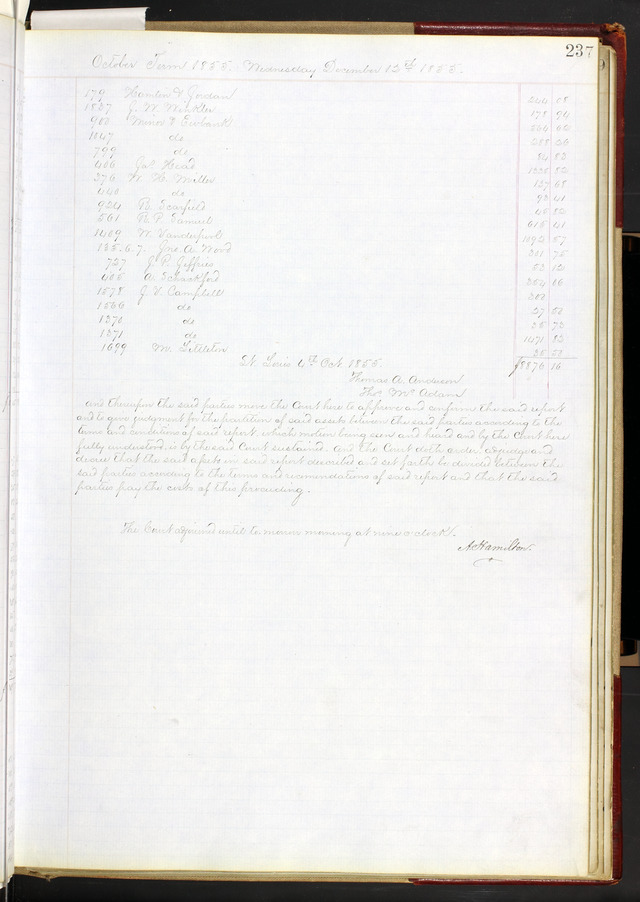 237
October Term 1855. Wednesday December 12th 1855.
179 Hamlin & Jordan 244 08
1837 J. W. Winkler 178 94
902 Minor & Ewbank
1847 do
799 do 84 82
406 Jas Head
276 W. B. Miller 127 68
440 do 92 41
924 B. Scarfield
561 B. P. Samuel 615 41
1409 W. Vanderpool 1092 57
135.6.7. Jno A. Ward 301 75
727 J. P. Jeffries 52 12
405 A. Schackford
1578 J. V. Campbell
1536 do
1370 do
1371 do 1471 82
1699 M. Littleton
St. Louis 4th Oct. 1855. $8876 16
Thomas A. Anderson
Thos McAdam
and thereupon the said parties move the Court here to approve and confirm the said report
and to give judgment for the partition of said assets between the said parties according to the
terms and conditions of said report, which motion being seen and heard and by the Court here
fully understood, is by the said Court sustained. and the Court doth order adjudge and
decree that the said assets in said report described and set forth be divided between the
said parties according to the terms and recomendations of said report and that the said
parties pay the costs of this proceeding.
The Court adjourned until to morrow morning at nine o'clock.
A. Hamilton.